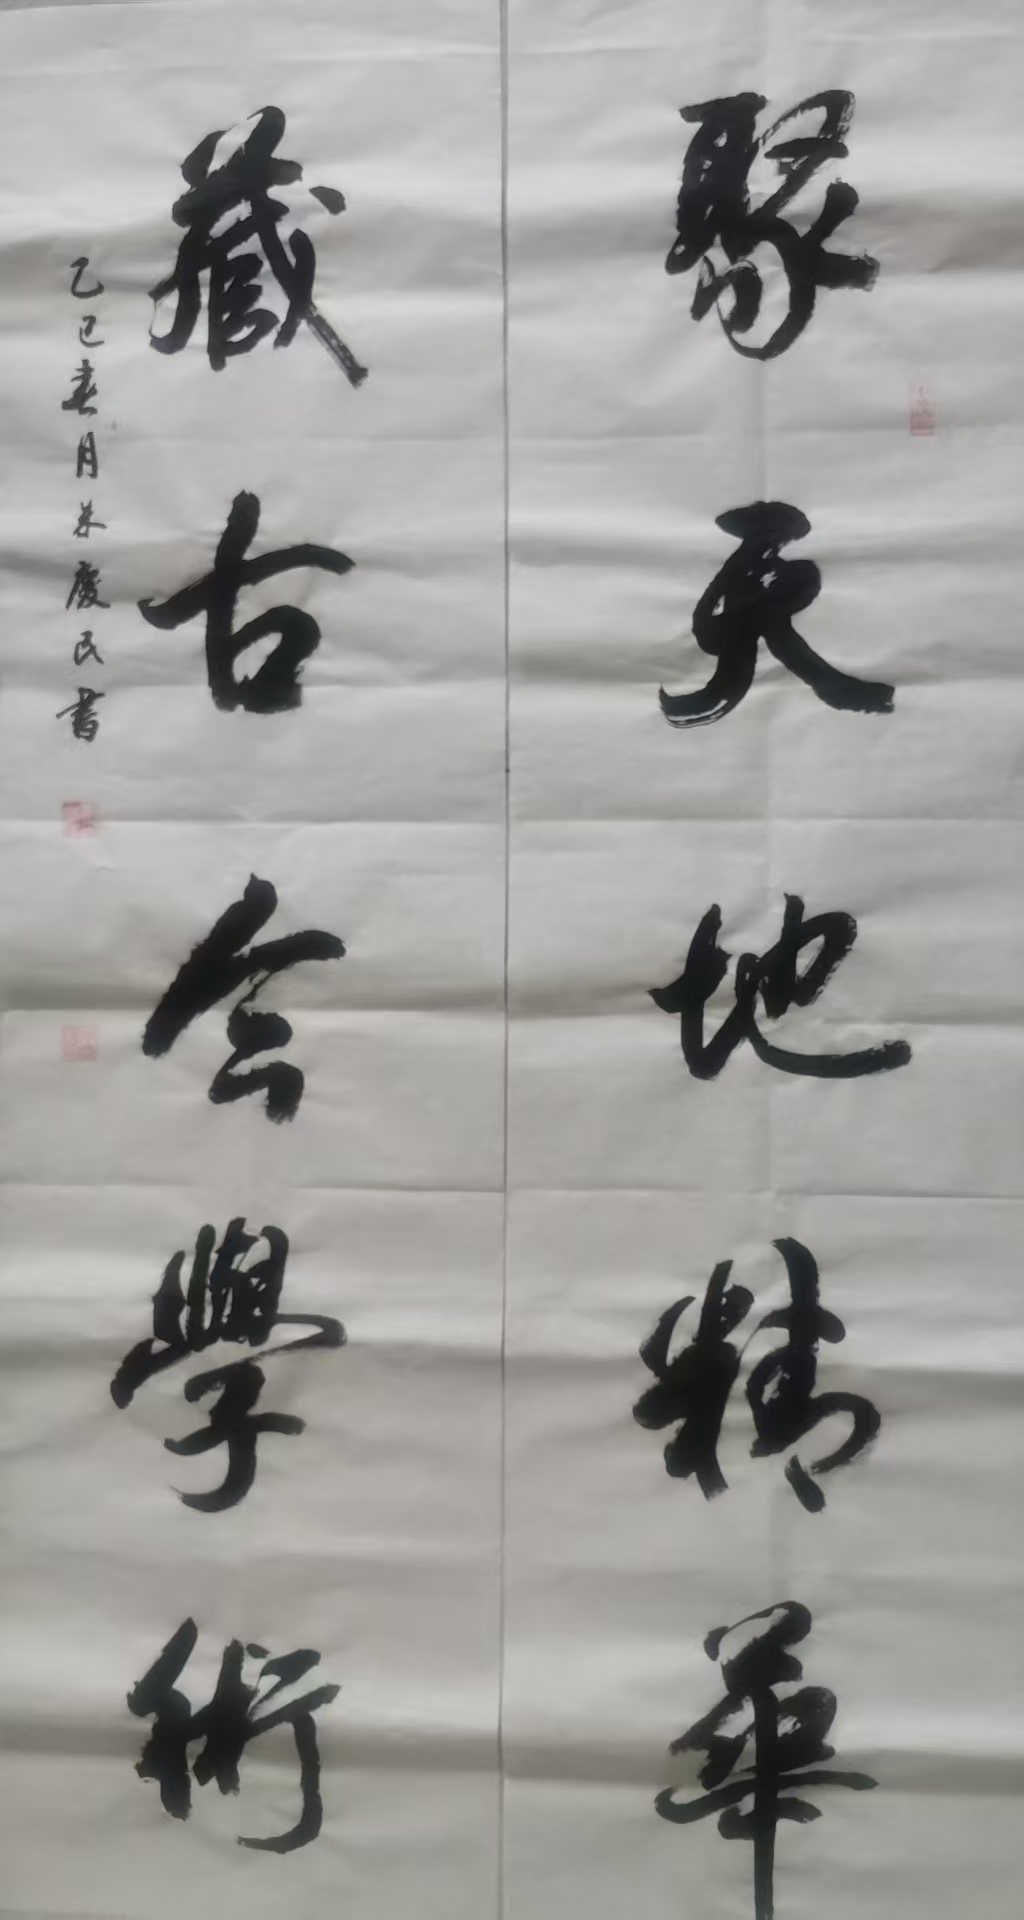 聚天地精華
藏古今學術
乙巳春月朱慶民書